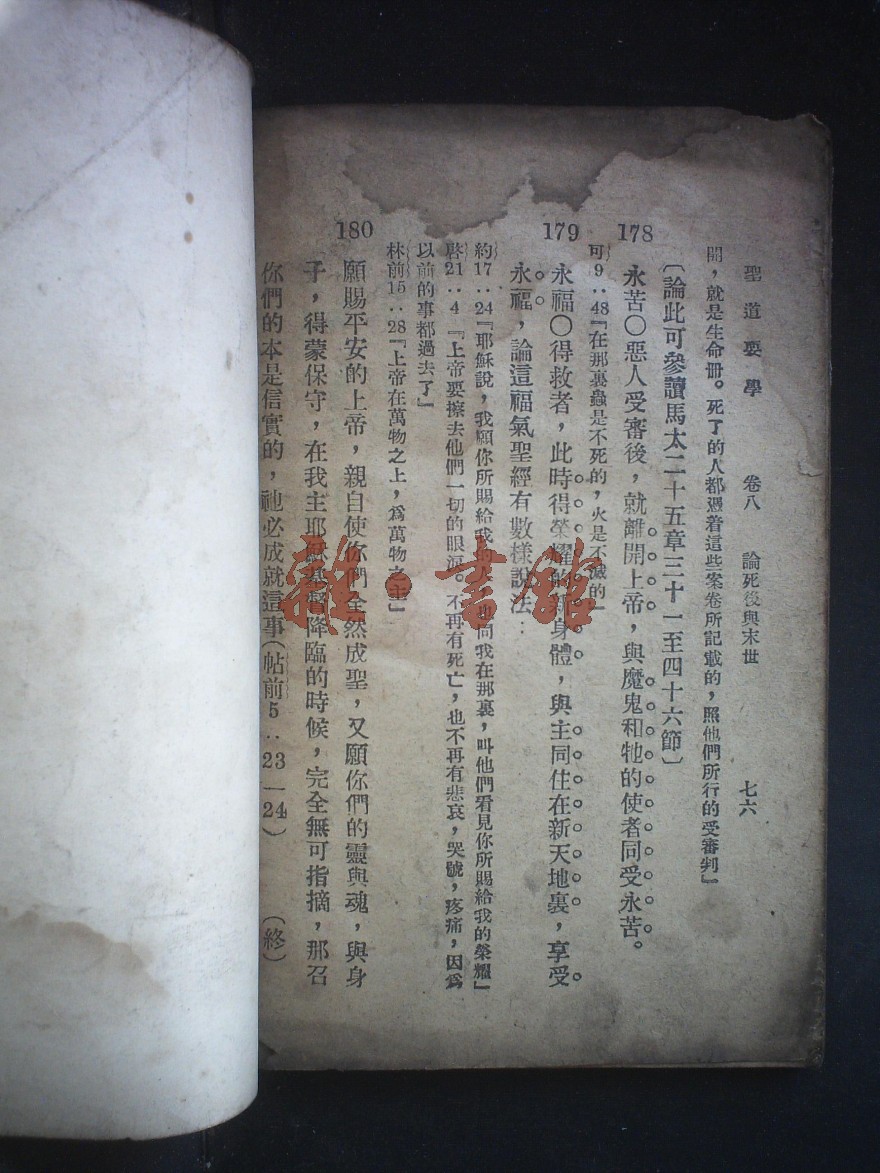 聖道要學　卷八　論死後與末世　七六
開，就是生命冊。死了的人都憑着這些案卷所記載的，照他們所行的受審判」
〔論此可參讀馬太二十五章三十一至四十六節〕
178 永苦〇惡人受審後，就離開上帝，與魔鬼和牠的使者同受永苦。
可9‥48『在那裏蟲是不死的，火是不滅的』
179 永福〇得救者，此時得榮耀的新身體，與主同住在新天地裏，享受
永福，論這福氣聖經有數樣說法‥
約17‥24『耶穌說，我願你所賜給我的人，也同我在那裏，叫他們看見你所賜給我的榮耀』
啓21‥4『上帝要擦去他們一切的眼淚。不再有死亡，也不再有悲哀，哭號，疼痛，因爲
以前的事都過去了』
林前15‥28『上帝在萬物之上，爲萬物之主』
180 願賜平安的上帝，親自使你們全然成聖，又願你們的靈與魂，與身
子，得蒙保守，在我主耶穌基督降臨的時候，完全無可指摘，那召
你們的本是信實的，祂必成就這事（帖前5‥23—24）　（終）
雜·書館